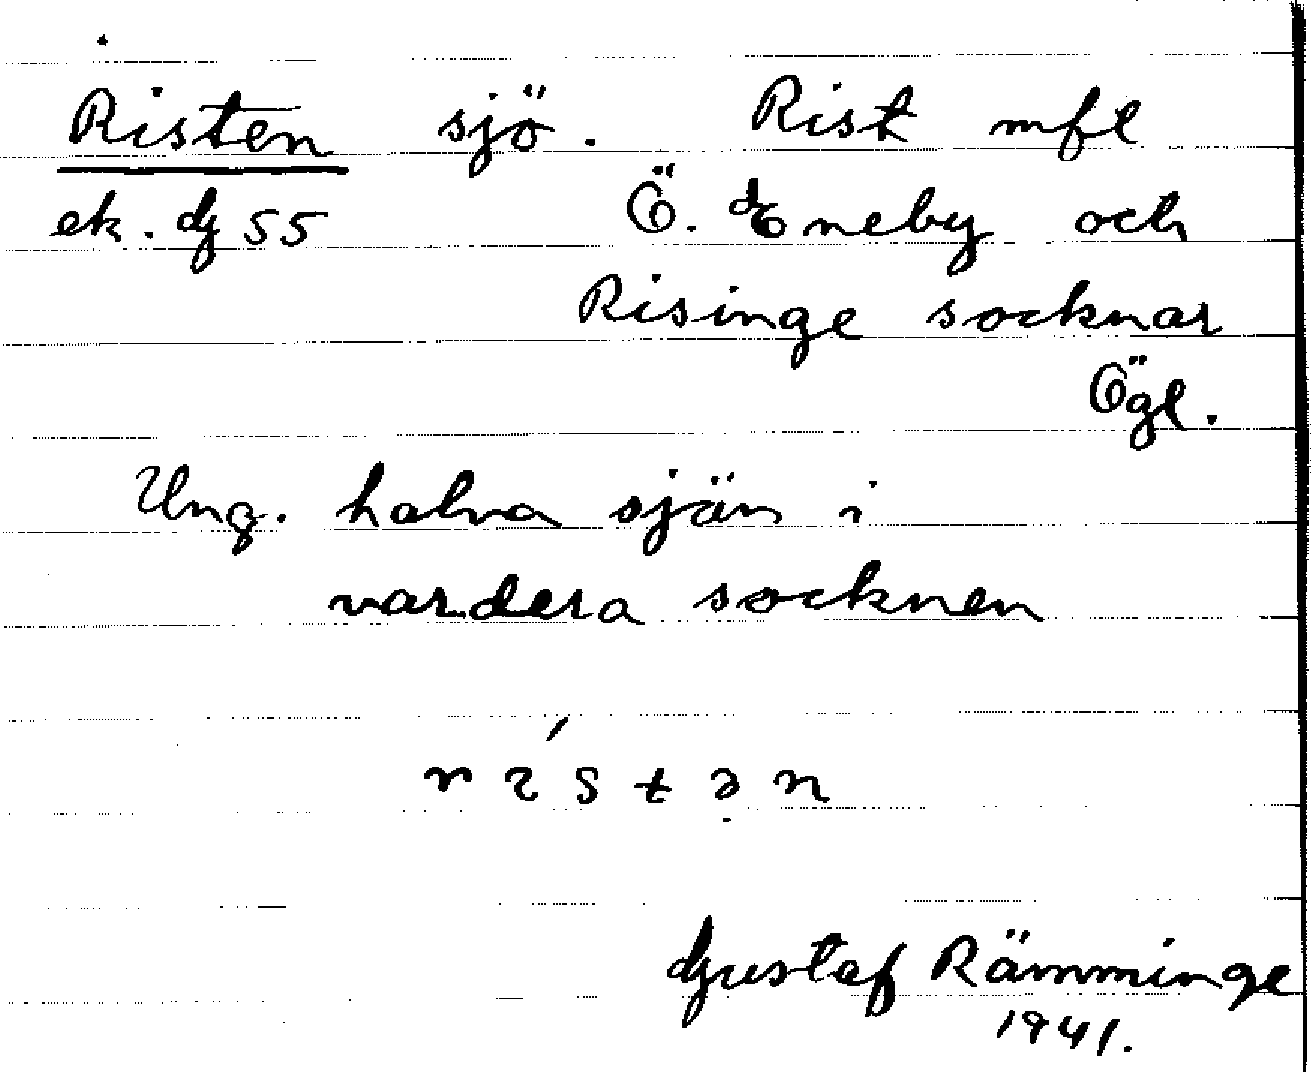 Risten sjö. Rist mfl
ek. dj 55 Ö. Eneby och
Risinge socknar
Ögl.
Ung. halva sjön i
vardera socknen
rɩśtən
Gustaf Rämminge
1941.